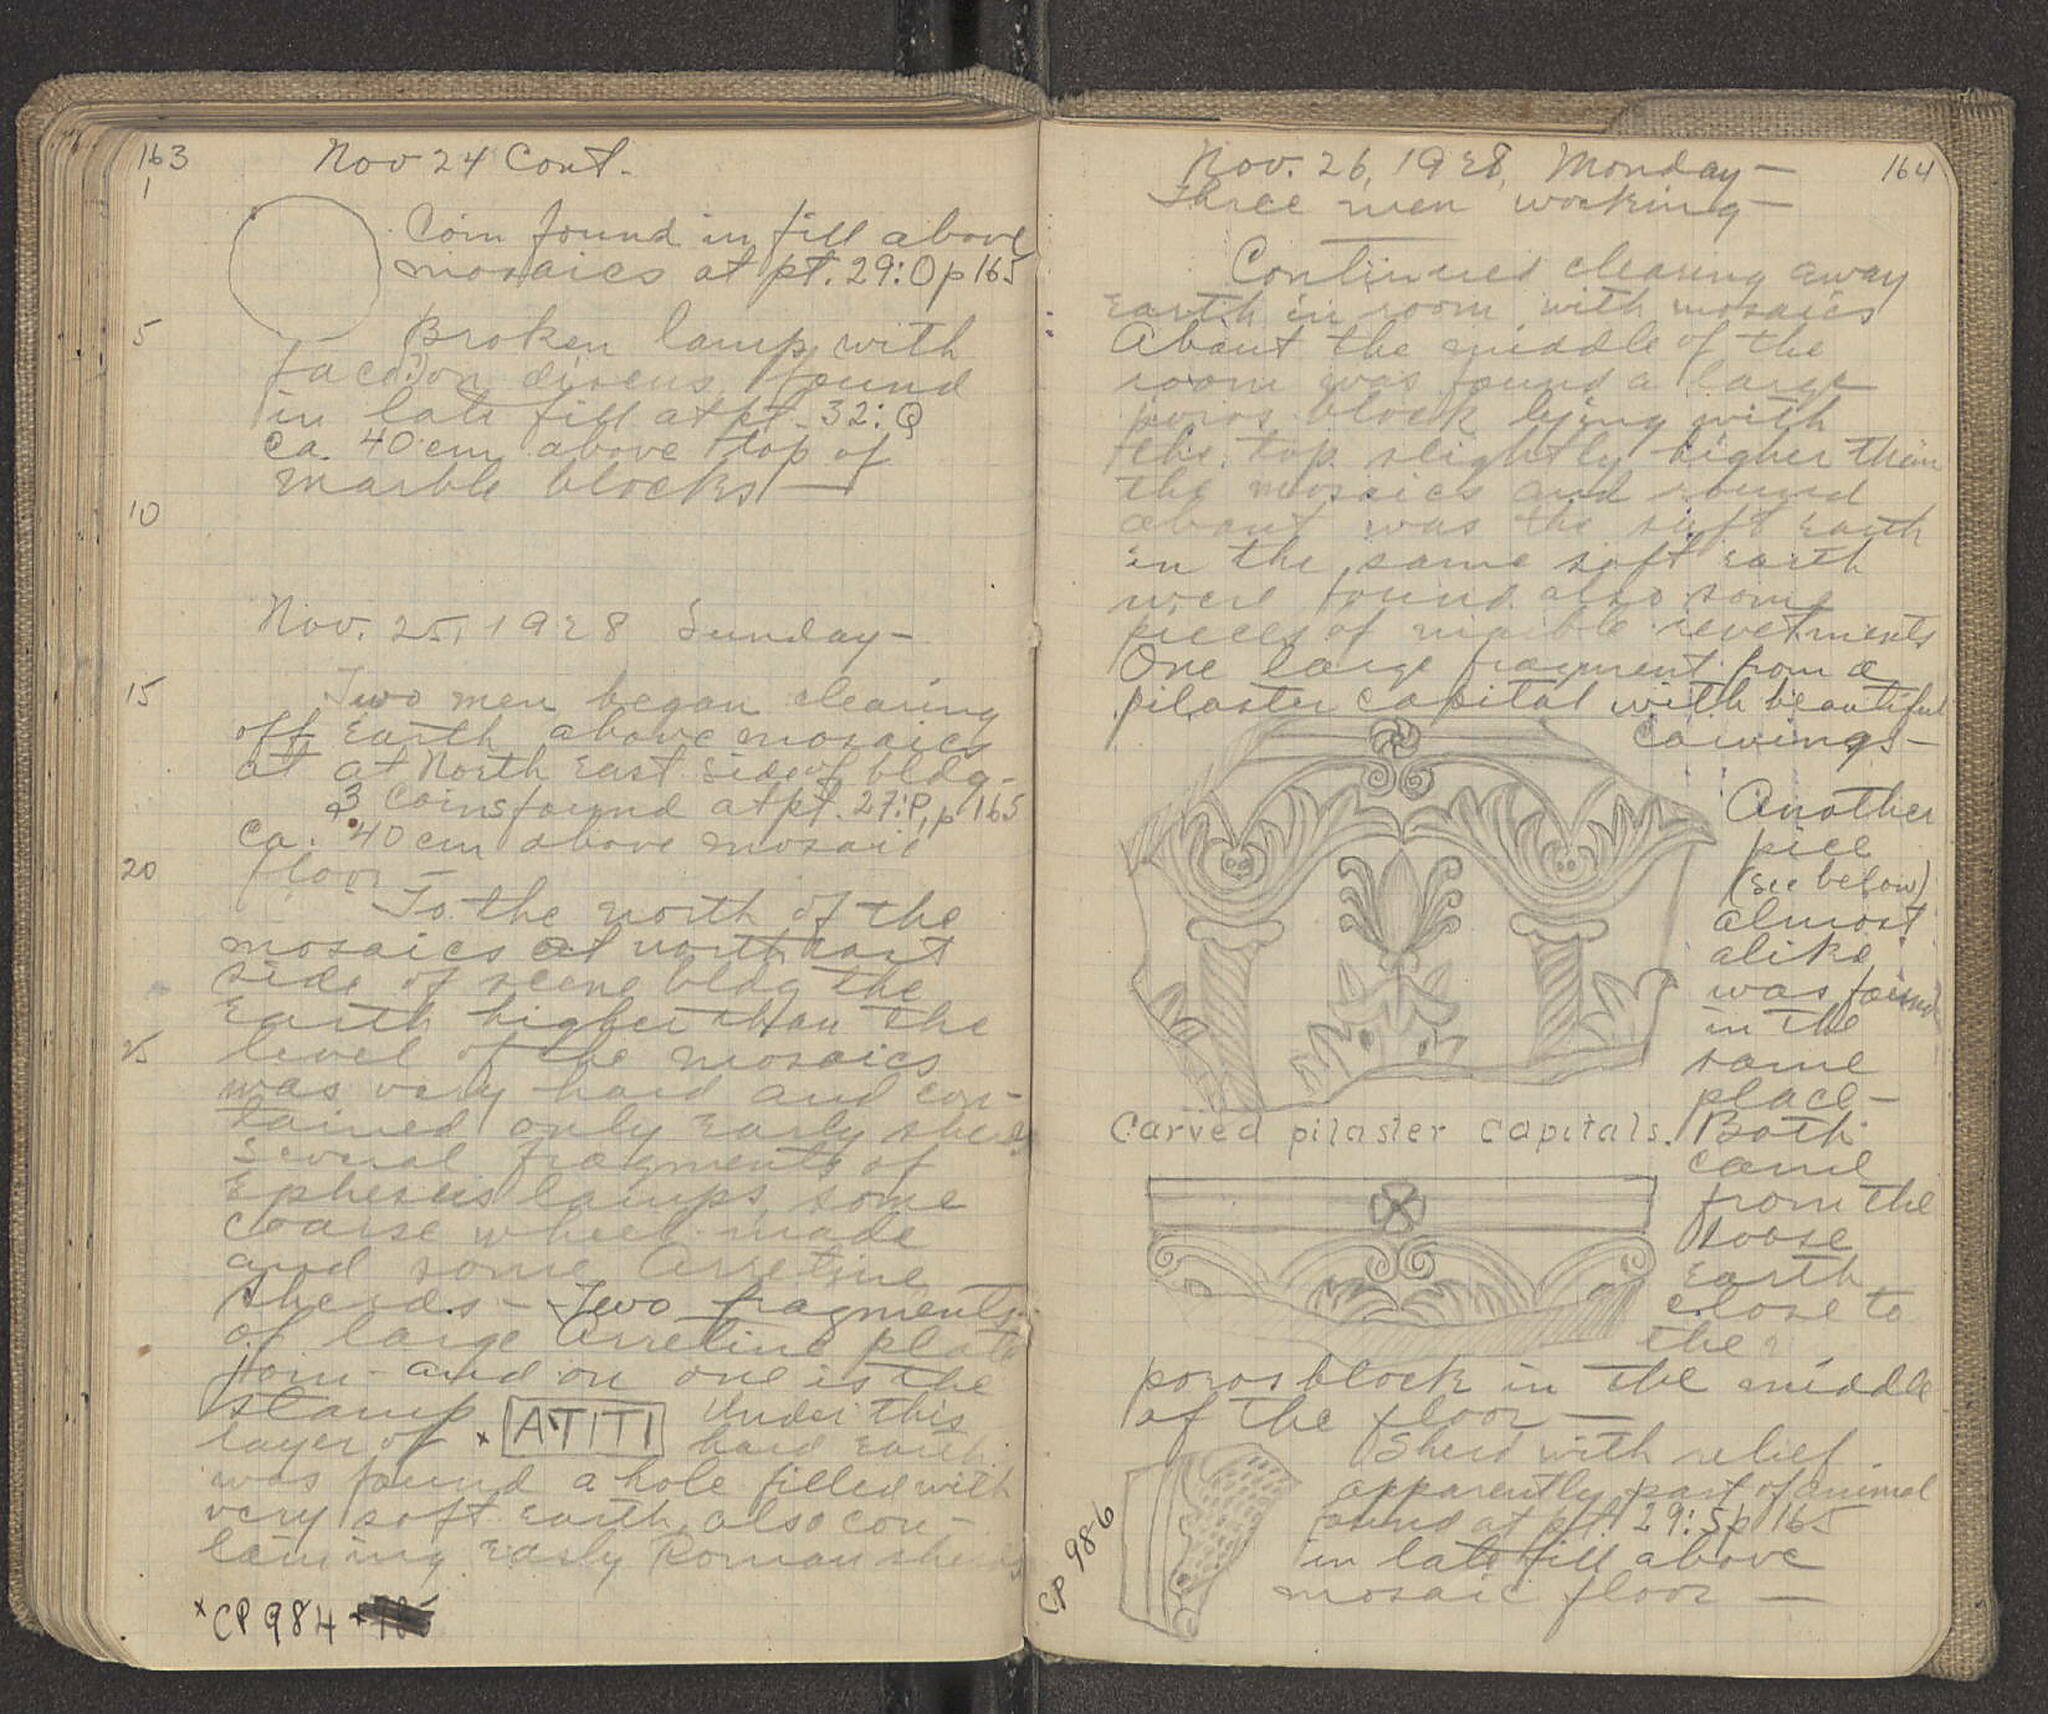 163
Nov 24 Cont.
1
Coin found in fill above
mosaics at pt. 29:O p 165
5
Broken lamp with
face(?) on discus found
in late fill at pt. 32:Q
ca. 40 cm above top of
marble blocks —
10
Nov. 25, 1928 Sunday —
15
Two men began clearing
off earth above mosaics
at at North East side of bldg —
3 coins found at pt. 27:P, p 165
ca. 40 cm above mosaic
20
floor —
To the north of the
mosaics at north east
side of scene bldg the
earth higher than the
25
level of the mosaics
was very hard and con-
tained only early sherds
Several fragments of
Ephesus lamps, some
coarse wheel-made
and some Arretine
sherds — Two fragments
of large Arretine plate
join - and on one is the
stamp x ATITI Under this
layer of hard earth
was found a hole filled with
very soft earth, also con-
taining early Roman sherds
x CP 984
164
Nov. 26, 1928, Monday —
Three men working —
Continued clearing away
earth in room with mosaics
About the middle of the
room was found a large
poros block lying with
the top slightly higher than
the mosaics and round
about was the soft earth
in the same soft earth
were found also some
pieces of marble revetments
One large fragment from a
pilaster capital with beautiful
carvings —
Another
piece
(see below)
almost
alike
was found
in the
same
place —
Carved pilaster capitals.
Both
came
from the
loose
earth
close to
the
poros block in the middle
of the floor —
Sherd with relief
apparently part of animal
found at pt. 29:S p 165
in late fill above
mosaic floor —
CP 986